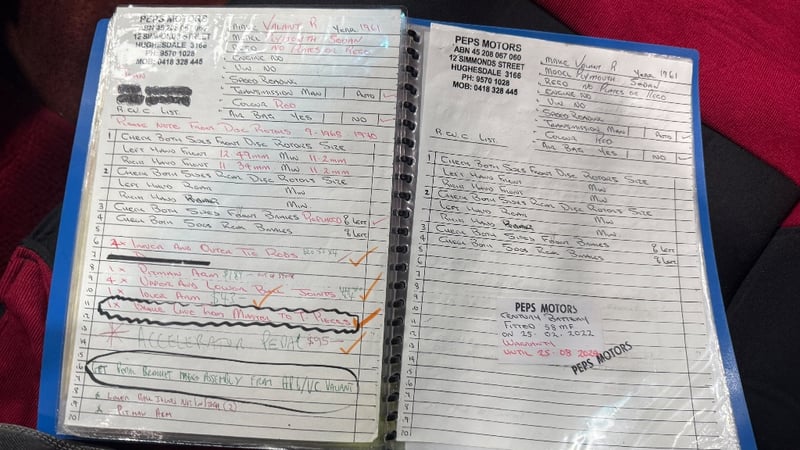 PEPS MOTORS
ABN 45 208 067 060
12 SIMMONDS STREET
HUGHESDALE 3166
PH: 9570 1028
MOB: 0418 328 445
MAKE VALANT R YEAR 1961
MODEL PLYMOUTH SEDAN
REGO NO PLATES OR REGO
ENGINE NO
VIN NO
SPEEDO READING
TRANSMISSION MAN AUTO ✓
COLOUR RED
AIR BAG YES NO ✓
R.W.C. LIST.
PLEASE NOTE FRONT DISC ROTORS 9-1968 1970
1 CHECK BOTH SIDES FRONT DISC ROTORS SIZE
LEFT HAND FRONT 12.49mm MIN 11.2mm
RIGHT HAND FRONT 11.34mm MIN 11.2mm
2 CHECK BOTH SIDES REAR DISC ROTORS SIZE
LEFT HAND REAR MIN
RIGHT HAND REAR MIN
3 CHECK BOTH SIDES FRONT BRAKES REPLACED % LEFT ✓
4 CHECK BOTH SIDES REAR BRAKES % LEFT
5
6 4x INNER AND OUTER TIE RODS
7
8 1x PITMAN ARM
9 4x UPPER AND LOWER BALL JOINTS
10 1x IDLER ARM $43
11 1x BRAKE LINE FROM MASTER TO T PIECES
12
13
14 ACCELERATOR PEDAL $95
15
16 GET PEDAL BRACKET BRAKES ASSEMBLY FROM AP6/VC VALIANT
17
18 LOWER BALL JOINTS (2)
PITMAN ARM
20
PEPS MOTORS
ABN 45 208 067 060
12 SIMMONDS STREET
HUGHESDALE 3166
PH: 9570 1028
MOB: 0418 328 445
MAKE VALANT R YEAR 1961
MODEL PLYMOUTH SEDAN
REGO NO PLATES OR REGO
ENGINE NO
VIN NO
SPEEDO READING
TRANSMISSION MAN AUTO ✓
COLOUR RED
AIR BAG YES NO ✓
R.W.C. LIST.
1 CHECK BOTH SIDES FRONT DISC ROTORS SIZE
LEFT HAND FRONT MIN
RIGHT HAND FRONT MIN
2 CHECK BOTH SIDES REAR DISC ROTORS SIZE
LEFT HAND REAR MIN
RIGHT HAND REAR MIN
3 CHECK BOTH SIDES FRONT BRAKES % LEFT
4 CHECK BOTH SIDES REAR BRAKES % LEFT
5
6
7
8
9
10
11
12
13
14
15
16
17
18
19
20
PEPS MOTORS
CENTURY BATTERY
FITTED 58 MF
ON 25-02-2022
WARRANTY
UNTIL 25-08-2024
PEPS MOTORS